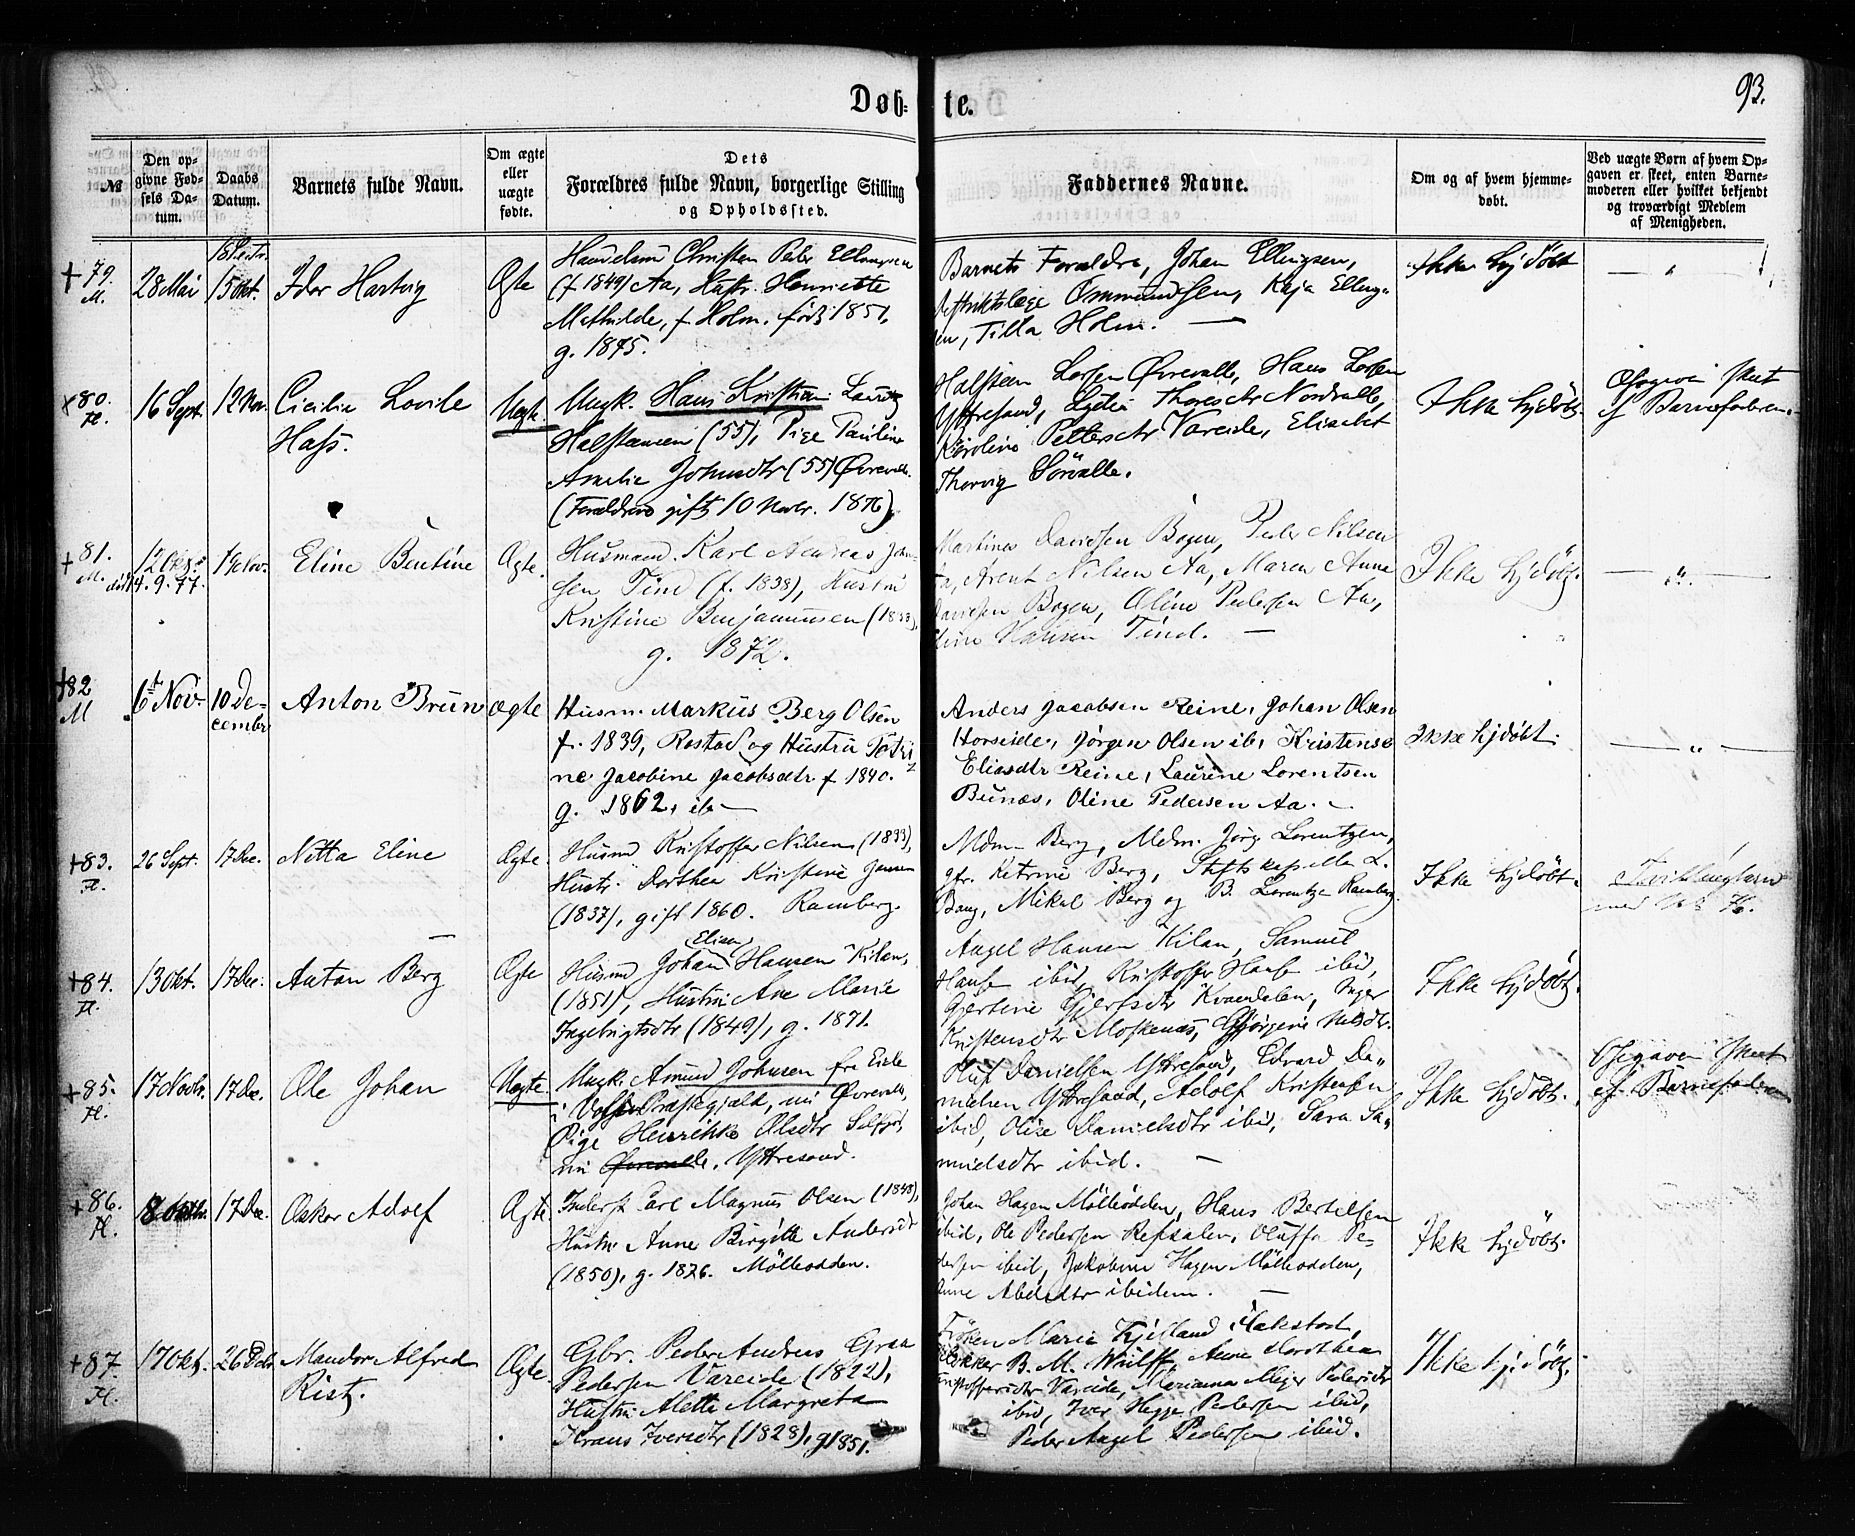 Døb-
te.
93.
№
Den op-
givne Fød-
sels Da-
tum.
Daabs
Datum.
Barnets fulde Navn.
Om ægte
eller
uægte
fødte.
Dets
Forældres fulde Navn, borgerlige Stilling
og Opholdssted.
Faddernes Navne.
Om og af hvem hjemme-
døbt.
Ved uægte Børn af hvem Op-
gaven er skeet, enten Barne-
moderen eller hvilket bekjendt
og troværdigt Medlem
af Menigheden.
+ 79.
M.
28 Mai
15 Okt.
Ider Hartvig
Ægte
Christian Peder
(f 1849) Aa, Hustr. Henriette
Mathilde, f Holm. født 1851,
g. 1875.
Barnets Forældre, Johan Ellingsen,
Distriktslæge Ommundsen, Kaja Elling-
sen, Tilla Holm. —
Ikke hjdøbt
— " —
x 80.
Fl.
16 Sept.
12 Nov.
Cicilie Lovise
Hass.
Uægte.
Ungk. Hans Kristian Lauritz
Halstensen (55), Pige Pauline
Amelia Johnsdtr (55) Øvrevalle.
(Forældrene gift 10 Novbr. 1876)
Halsteen Larsen Øvrevalle, Hans Larsen
Yttresand, Lydia Thoresdtr Nordvalle,
Karoline Pettersdtr Vareide, Elisabet
Thorvig Sørvalle.
Ikke hjdøbt.
Opgaven skeet
af Barnefaderen.
+ 81.
M.
12 Okt.
død 14.9.77.
19 Nov.
Eline Bentine
Ægte.
Husmand Karl Andreas John-
sen Tind (f. 1838), Hustru
Kristine Benjaminsen (1833),
g. 1872.
Martinus Davidsen Bogen, Peder Nilsen
Aa, Arent Nilsen Aa, Maren Anna
Davidsen Bogen, Oline Pedersen Aa,
Eline Hansen Tind. —
Ikke hjdøbt.
— " —
+82
M
6t Nov.
10 De-
cember
Anton Brun
Ægte
Husm. Markus Berg Olsen
f. 1839, Rostad og Hustru Petri-
ne Jacobine Jacobsdtr f 1840.
g. 1862, ib —
Anders Jacobsen Reine, Johan Olsen
Horseide, Jørgen Olsen ib, Kristense
Eliasdtr Reine, Laurine Lorentsen
Bunæs, Oline Pedersen Aa. —
Ikke hjdøbt.
— " —
+ 83.
Fl.
26 Sept.
17 Dec.
Netta Eline
Ægte.
Husmd Kristoffer Nilsen (1833),
Hustr. Dorthea Kristine Jensen
(1837), gift 1860. Ramberg.
Mdm Berg, Mdm. Jørg. Lorentzen,
gfr. Katrine Berg, Stiftskapellan L.
Bang, Mikal Berg og B. Lorentzen Ramberg.
Ikke hjdøbt.
Tvillingbarn
med No 76.
+ 84.
Fl.
13 Okt.
17 Dec.
Anton Berg
Ægte
Elisæus
Husmd Johan Hansen Kilan,
(1851), Hustru Ane Marie
Ingebrigtsdtr (1849), g. 1871.
Angel Hansen Kilan, Samuel
Hansen ibid, Kristoffer Hansen ibid,
Gjertine Gjertsdtr Kvændalen, Inger
Kristensdtr Moskenæs, Jørgine Nilsdtr.
Ikke hjdøbt.
+ 85.
Fl.
17 Novbr.
17 Dec.
Ole Johan
Uægte
Ungk. Amund Johnsen fra Eide
i Præstegjæld, nu Øvrevalle,
Pige Henrikke Olsdtr Solfjord,
nu Øvrevalle. Yttresand.
Oluf Danielsen Yttresand, Edvard Da-
nielsen Yttresand, Adolf Kristensen
ibid, Olise Danielsdtr ibid, Sara Sa-
muelsdtr ibid. —
Ikke hjdøbt.
Opgaven skeet
af Barnefaderen
+ 86.
Fl.
17 Dec.
Oskar Adolf
Ægte.
Inderst Carl Magnus Olsen (1848),
Hustr. Anne Birgitte Andersdtr
(1850), g. 1876. Mølleodden.
Johan Hagen Mølleodden, Hans Bertelsen
ibid, Ole Pedersen Refsalen, Oluffa Pe-
dersen ibid, Jakobine Hagen Mølleodden,
Anne Abelsdtr ibidem. —
Ikke hjdøbt.
+ 87.
Fl.
17 Okt.
26 Decbr
Mandor Alfred
Rist.
Ægte.
Gbr. Peder Andreas Graa
Pedersen Vareide (1822),
Hustru Alette Margreta
Kraus Iversdtr (1828), g 1851.
Frøken Marie Kjelland Flakstad,
Klokker B. M. Wulff, Anne Dorothea
Kristoffersdtr Vareide, Marianna Meyer Pedersdtr
ibid, Iver Hegge Pedersen ibid,
Peder Angel Pedersen ibid.
Ikke hjdøbt.